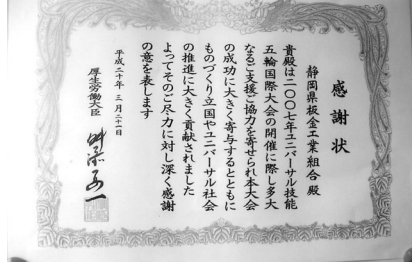 感謝状
静岡県板金工業組合 殿
貴殿は二〇〇七年ユニバーサル技能
五輪国際大会の開催に際し多大
なるご支援ご協力を寄せられ本大会
の成功に大きく寄与するとともに
ものづくり立国やユニバーサル社会
の推進に大きく貢献されました
よってそのご尽力に対し深く感謝
の意を表します
平成二十年 三月二十一日
厚生労働大臣
舛添要一